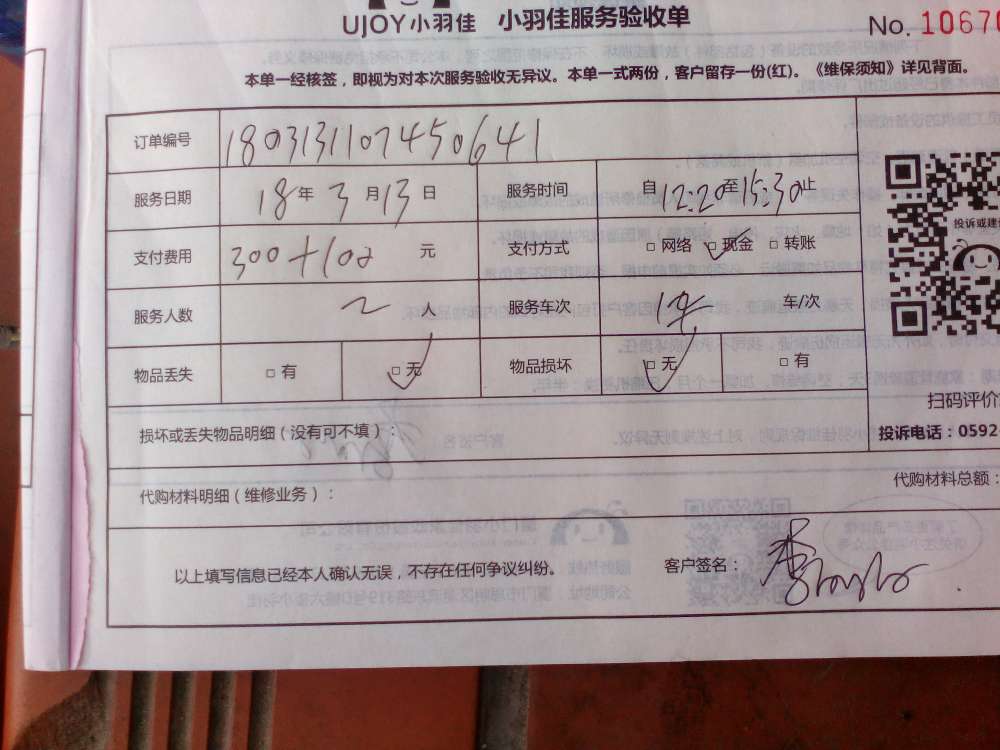 UJOY小羽佳 小羽佳服务验收单
No. 1067
本单一经核签，即视为对本次服务验收无异议。本单一式两份，客户留存一份(红)。《维保须知》详见背面。
订单编号 180313110745064 1
服务日期 18年 3月13日 服务时间 自12:20至15:30止
支付费用 300+100 元 支付方式 □网络 □现金 □转账
服务人数 2人 服务车次 1 车/次
物品丢失 □有 □无 物品损坏 □无 □有
投诉或建
扫码评价
损坏或丢失物品明细（没有可不填）：
投诉电话：0592-
代购材料明细（维修业务）：
代购材料总额：
以上填写信息已经本人确认无误，不存在任何争议纠纷。
客户签名：李